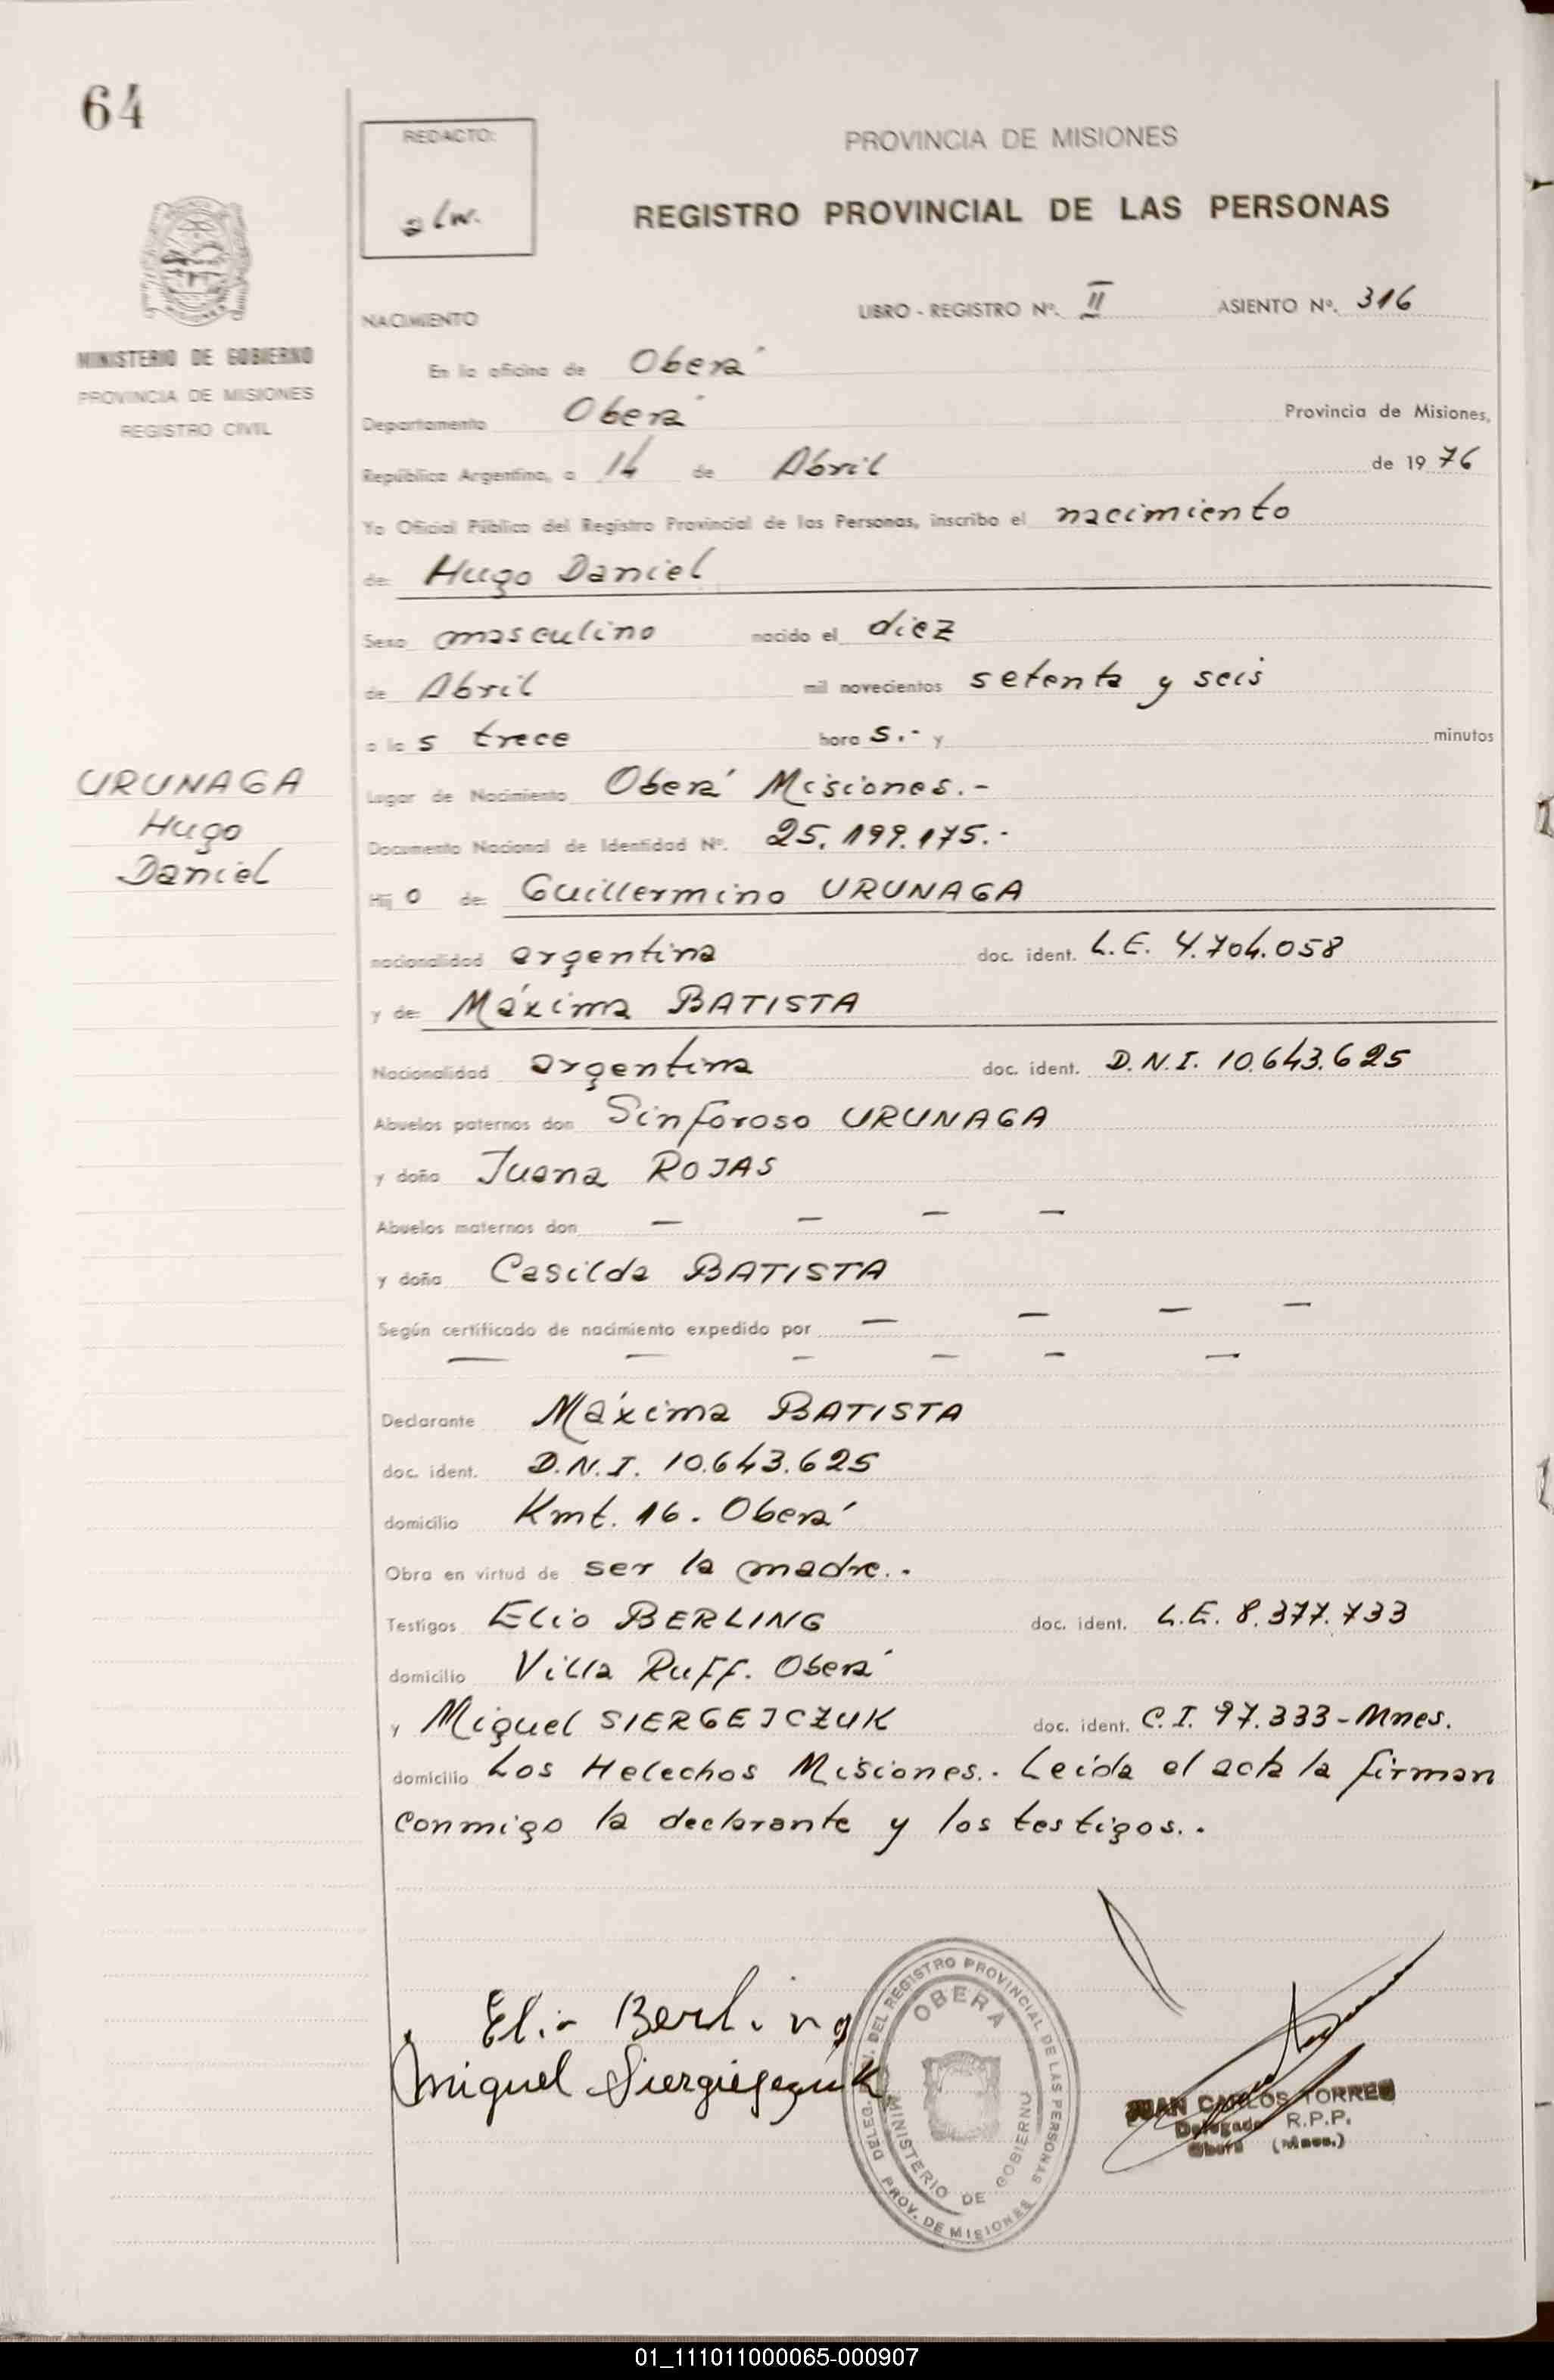 64
REDACTO:
alw.
PROVINCIA DE MISIONES
REGISTRO PROVINCIAL DE LAS PERSONAS
MINISTERIO DE GOBIERNO
PROVINCIA DE MISIONES
REGISTRO CIVIL
NACIMIENTO LIBRO - REGISTRO Nº. II ASIENTO Nº. 316
En la oficina de Oberá
Departamento Oberá Provincia de Misiones,
República Argentina, a 14 de Abril de 1976
Yo Oficial Público del Registro Provincial de las Personas, inscribo el nacimiento
de: Hugo Daniel
Sexo masculino nacido el diez
de Abril mil novecientos setenta y seis
a las trece horas.- y minutos
URUNAGA
Hugo
Daniel
Lugar de Nacimiento Oberá Misiones.-
Documento Nacional de Identidad Nº. 25.199.175.-
Hijo de: Guillermino URUNAGA
nacionalidad argentina doc. ident. L.E. 4.704.058
y de: Máxima BATISTA
Nacionalidad argentina doc. ident. D.N.I. 10.643.625
Abuelos paternos don Sinforoso URUNAGA
y doña Juana ROJAS
Abuelos maternos don — — — —
y doña Casilda BATISTA
Según certificado de nacimiento expedido por — — — —
— — — — — —
Declarante Máxima BATISTA
doc. ident. D.N.I. 10.643.625
domicilio Kmt. 16. Oberá
Obra en virtud de ser la madre..
Testigos Elio BERLING doc. ident. L.E. 8.377.733
domicilio Villa Ruff. Oberá
y Miguel SIERGEJCZUK doc. ident. C.I. 97.333-Mnes.
domicilio Los Helechos Misiones.. Leída el acta la firman
conmigo la declarante y los testigos..
Elio Berling
Miguel Siergiejczuk
DELEG. DEL REGISTRO PROVINCIAL DE LAS PERSONAS
OBERA
MINISTERIO DE GOBIERNO
PROV. DE MISIONES
JUAN CARLOS TORRES
Delegado R.P.P.
Oberá (Mnes.)
01_111011000065-000907